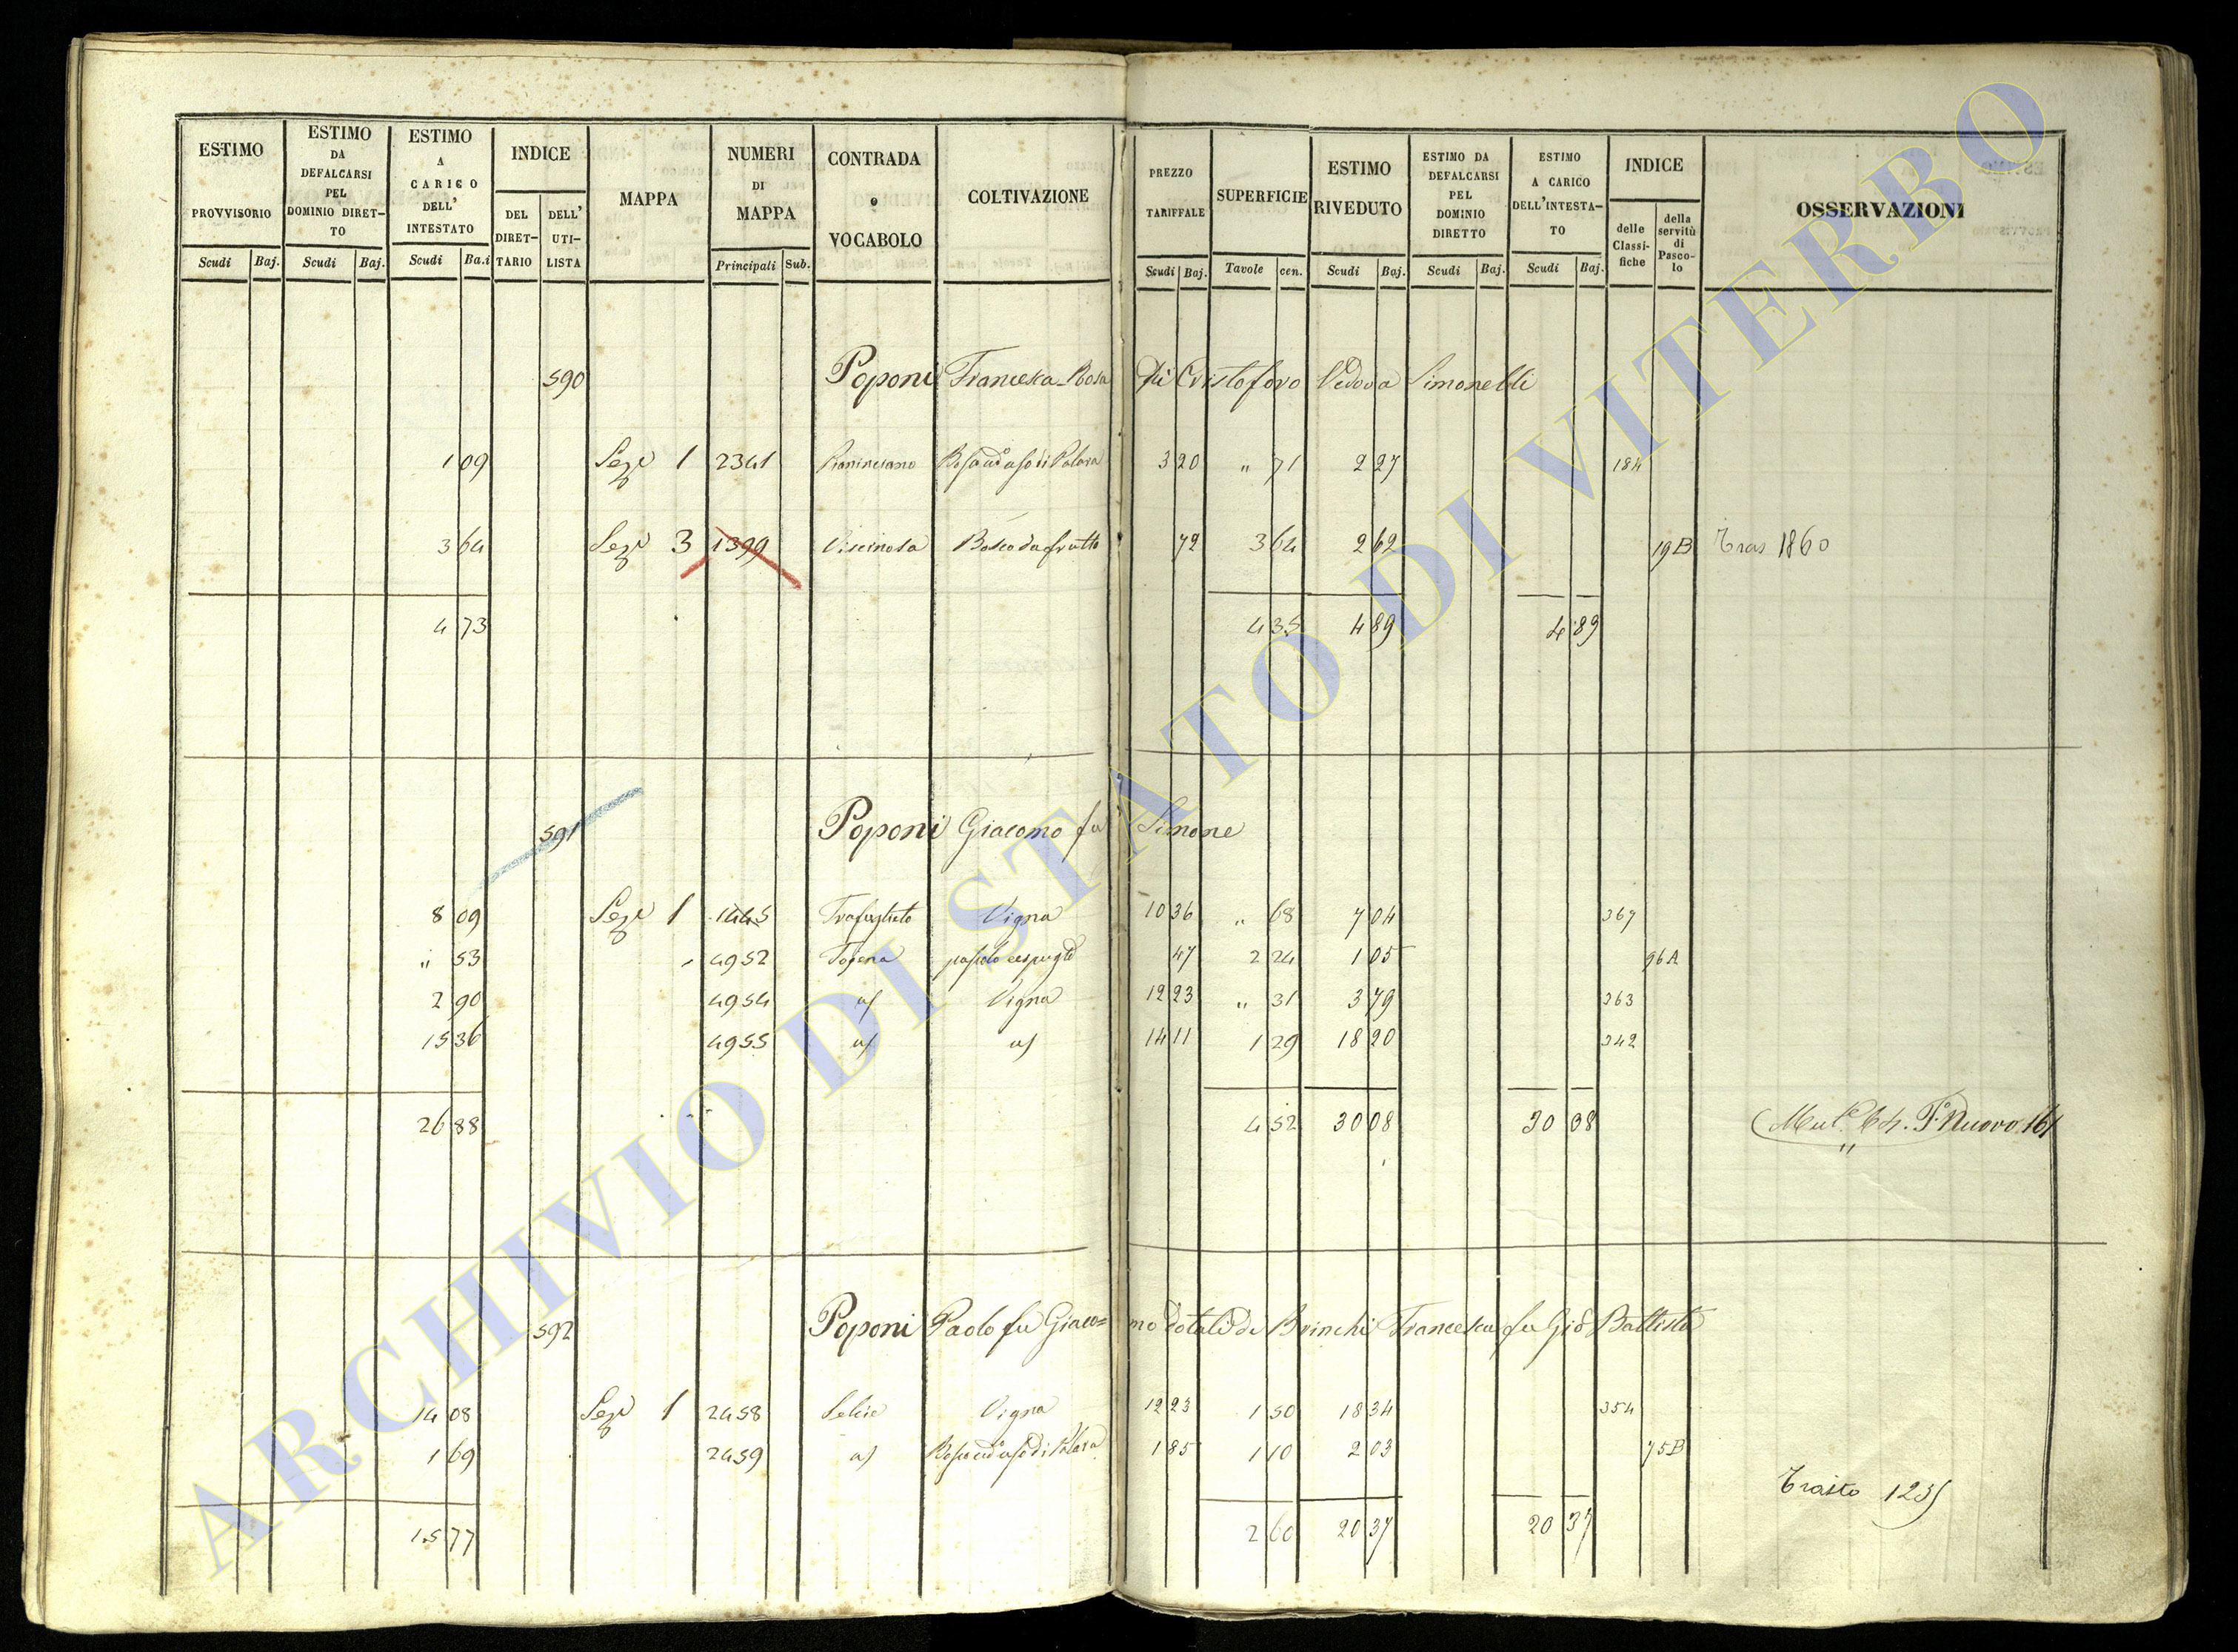 ESTIMO PROVVISORIO Scudi Baj.
ESTIMO DA DEFALCARSI PEL DOMINIO DIRET-TO Scudi Baj.
ESTIMO A CARICO DELL' INTESTATO Scudi Ba.i
INDICE DEL DIRET-TARIO DELL' UTI-LISTA
MAPPA
NUMERI DI MAPPA Principali Sub.
CONTRADA o VOCABOLO
COLTIVAZIONE
PREZZO TARIFFALE Scudi Baj.
SUPERFICIE Tavole cen.
ESTIMO RIVEDUTO Scudi Baj.
ESTIMO DA DEFALCARSI PEL DOMINIO DIRETTO Scudi Baj.
ESTIMO A CARICO DELL'INTESTA-TO Scudi Baj.
INDICE delle Classi-fiche della servitù di Pasco-lo
OSSERVAZIONI
590 Poponi Francesca-Rosa di Cristoforo Vedova Simonelli
1 09 Seze 1 2341 3 20 " 71 2 27 184
3 64 Seze 3 1399 Viscinosa Bosco da frutto 72 3 64 2 62 19B Tras 1860
4 73 4 35 4 89 4 89
591 Poponi Giacomo fu Simone
8 09 Seze 1 1445 Vigna 10 36 " 68 7 04 367
" 53 4952 47 2 24 1 05 96A
2 90 4954 Vigna 12 23 " 31 3 79 363
15 36 4955 14 11 1 29 18 20 342
26 88 4 52 30 08 30 08 64. P. Nuovo. 161
592 Poponi Paolo fu Giaco= mo dotali di Brinchi Francesca fu Gio Battista
14 08 Seze 1 2458 Selcie Vigna 12 23 1 50 18 34 354
1 69 2459 1 85 1 10 2 03 75B
15 77 2 60 20 37 20 37
ARCHIVIO DI STATO DI VITERBO